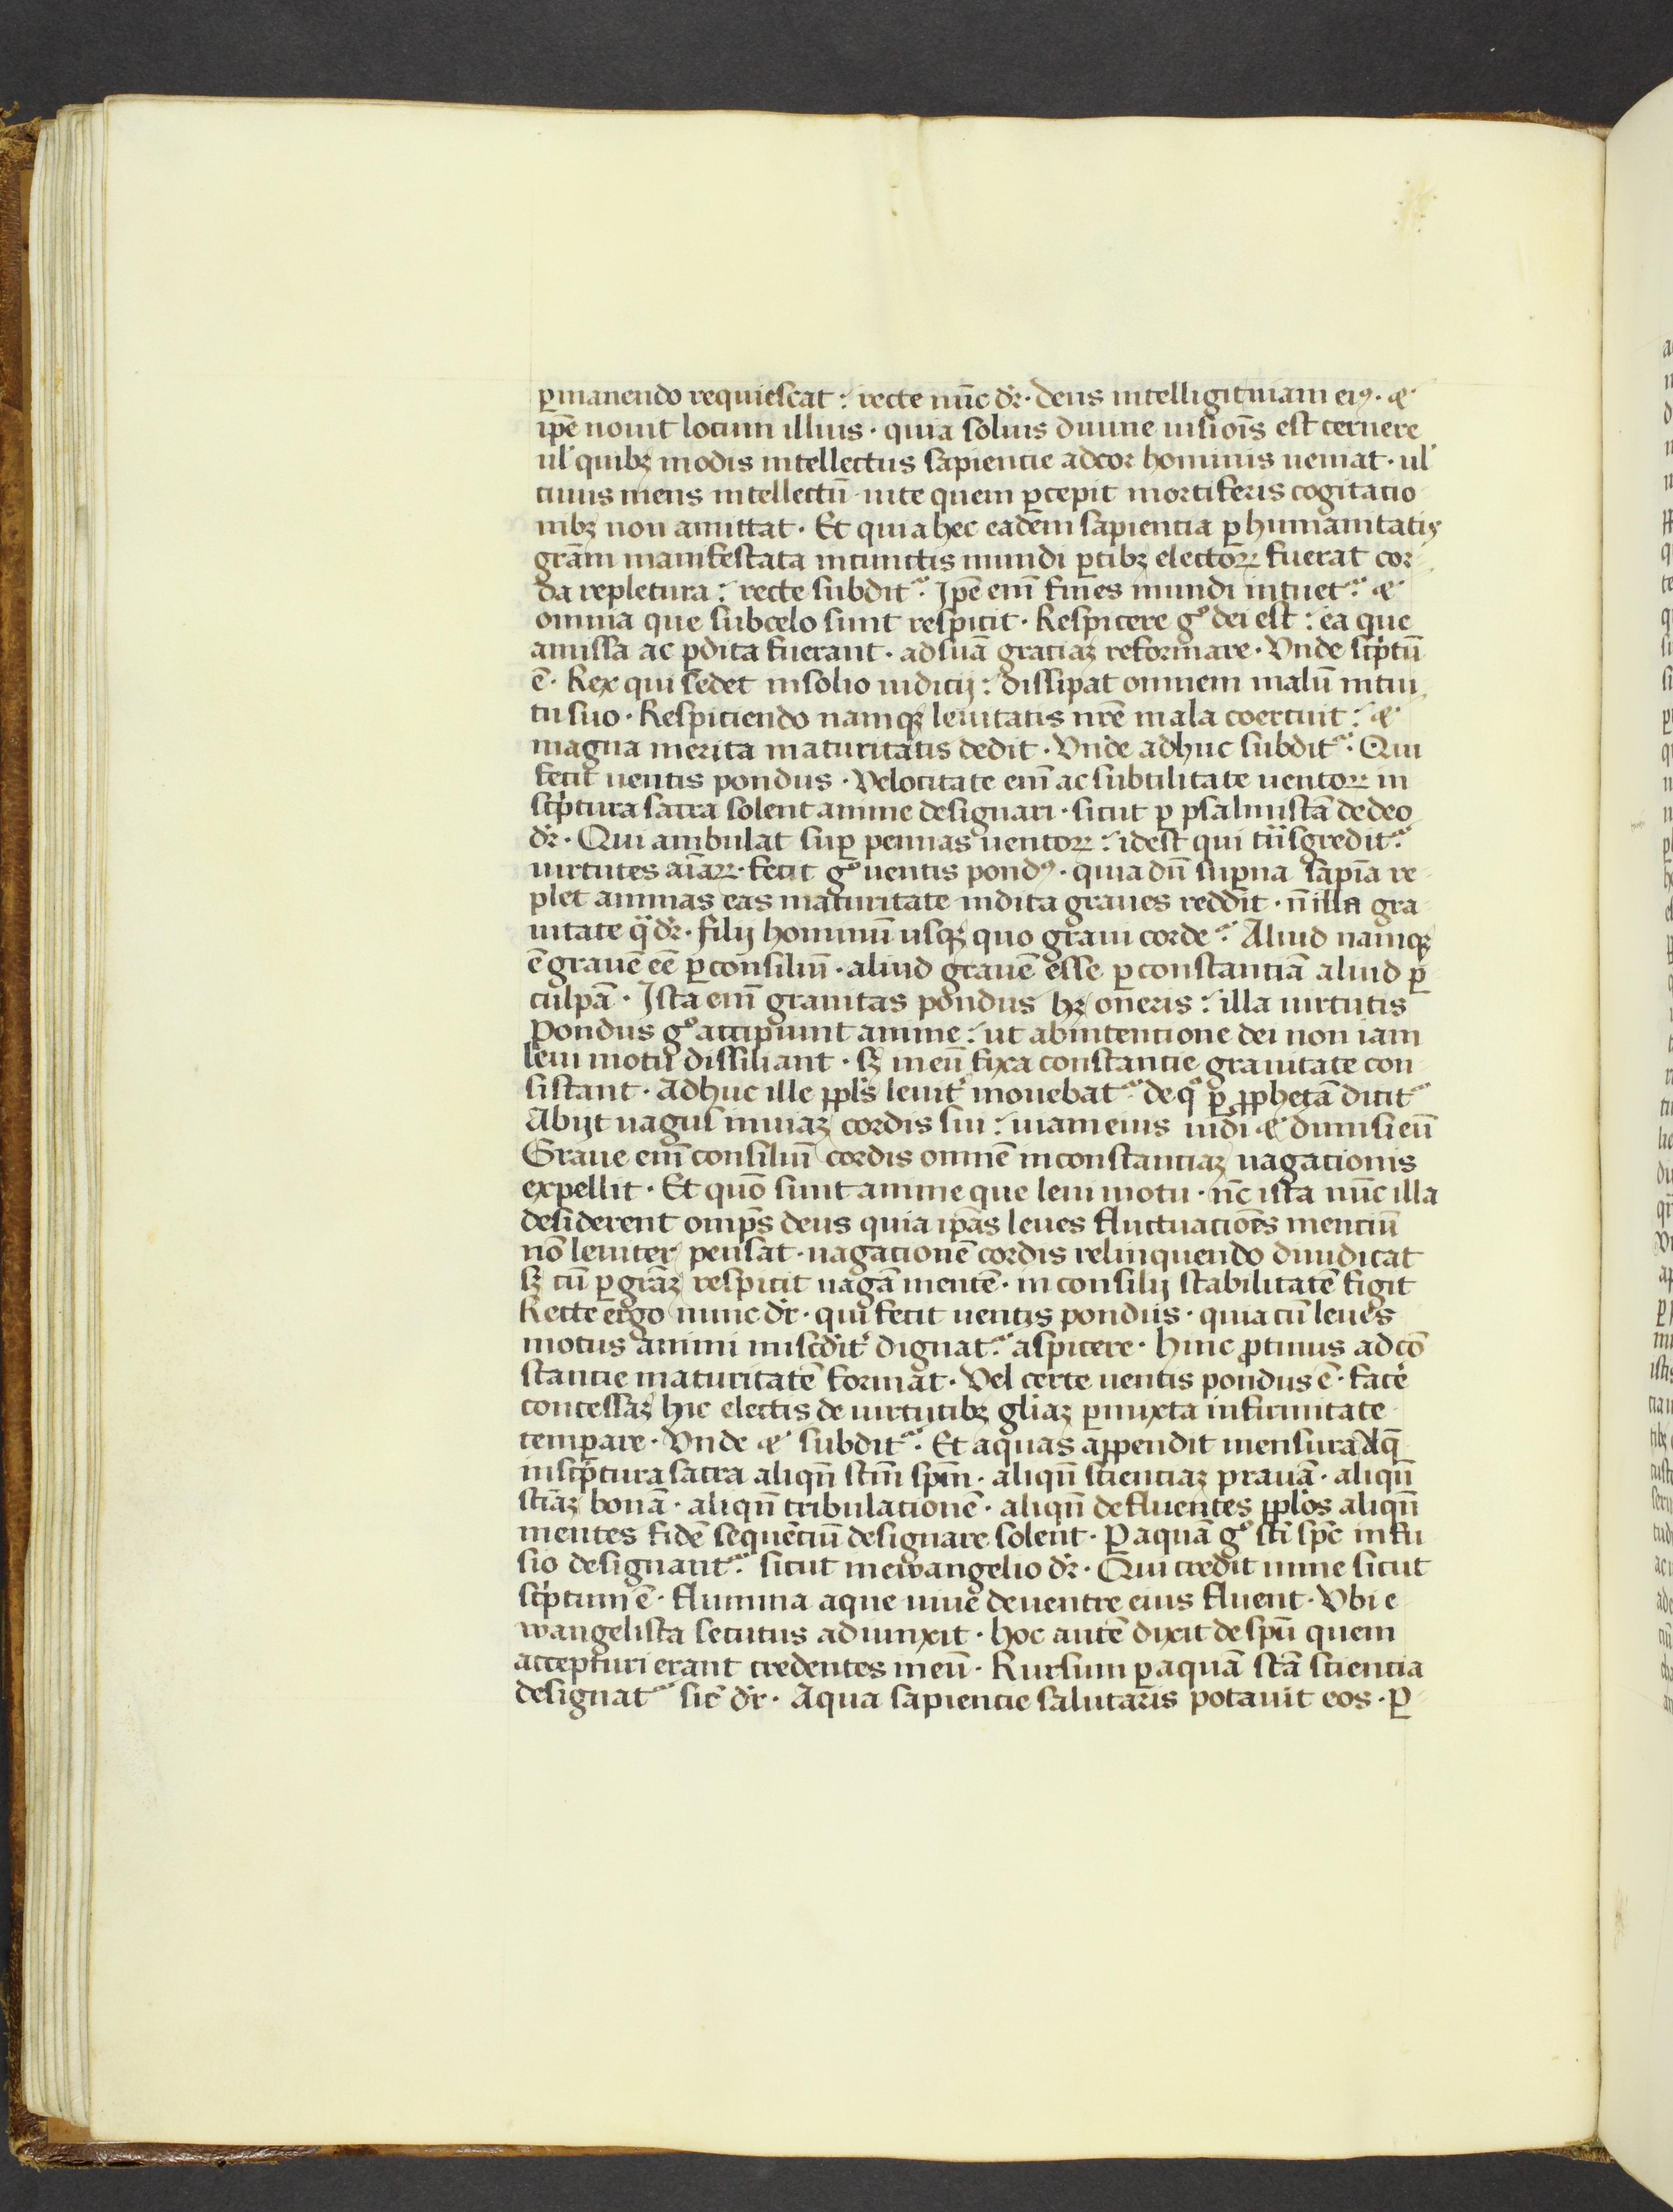 ꝑmanendo requiescat : recte nūc dr̄ · deus intelligit uiam eiꝰ · ⁊
ip̄e nouit locum illius · quia solius diuine uisiōis est cernere
ul' quibꝫ modis intellectus sapiencie ad cor hominis ueniat · ul'
cuius mens intellectū uite quem ꝑcepit mortiferis cogitatio
nibꝫ non amittat · Et quia hec eadem sapientia ꝑ humanitatis
gr̄am manifestata in cunctis mundi ꝑtibꝫ electoꝝ fuerat cor
da repletura : recte subditᷣ · Ip̄e em̄ fines mundi intuetᷣ · ⁊
omnia que sub celo sunt respicit · Respicere gͦ dei est : ea que
amissa ac ꝑdita fuerant · ad suā graciaꝫ reformare · Vnde sc̓ptū
ē · Rex qui sedet in solio iudicij : dissipat omnem malū intui
tu suo · Respiciendo namqꝫ leuitatis nr̄e mala coercuit : ⁊
magna merita maturitatis dedit · Vnde adhuc subditᷣ · Qui
fecit uentis pondus · Velocitate em̄ ac subtilitate uentoꝝ in
sc̓ptura sacra solent anime designari · sicut ꝑ psalmistā de deo
dr̄ · Qui ambulat suꝑ pennas uentoꝝ : idest qui tͣnsgreditᷣ
uirtutes aīaꝝ · fecit gͦ uentis pondꝰ · quia dū suꝑna sapīa re
plet animas eas maturitate indita graues reddit · n̄ illa gra
uitate qͣ dr̄ · filij hominū usqꝫ quo graui corde · Aliud namqꝫ
ē grauē eē ꝑ consiliū · aliud grauē esse ꝑ constantiā aliud ꝑ
culpā · Ista em̄ grauitas pondus hꝫ oneris : illa uirtutis
Pondus gͦ accipiunt anime : ut ab intentione dei non iam
leui motu dissiliant · sꝫ in eū fixa constantie grauitate con
sistant · Adhuc ille ppl̄s leuit̓ mouebatᷣ de qͦ ꝑ ꝓphetā dicitᷣ
Abijt uagus in uiaꝫ cordis sui : uiam eius uidi ⁊ dimisi eū
Graue em̄ consiliū cordis omnē inconstanciaꝫ uagationis
expellit · Et quō sunt anime que leui motu · nc̄ ista nūc illa
desiderent omp̄s deus quia ip̄as leues fluctuatiōes mencium̄
nō leuiter pensat · uagationē cordis relinquendo diiudicat
sꝫ cū ꝑ gr̄aꝫ respicit uagā mentē · in consilij stabilitatē figit
Recte ergo nunc dr̄ · qui fecit uentis pondus · quia cū leues
motus animi misc̄dit̓ dignatᷣ aspicere · hinc ꝓtinus ad cō
stancie maturitatē format · Vel certe uentis pondus ē · facē
concessaꝫ hic electis de uirtutibꝫ gl̄iaꝫ ꝑmixta infirmitate
temꝑare · Vnde ⁊ subditᷣ · Et aquas appendit mensura Aq̄
in sc̓ptura sacra aliqn̄ sc̄m sp̄m · aliqn̄ scienciaꝫ prauā · aliqn̄
sc̄iaꝫ bonā · aliqn̄ tribulationē · aliqn̄ defluentes ppl̄os aliqn̄
mentes fidē sequenciū designare solent · P aquā gͦ sc̄i sp̄c infu
sio designantᷣ · sicut in ewangelio dr̄ · Qui credit in me sicut
sc̓ptum ē · flumina aque uiue de uentre eius fluent · Vbi e
wangelista secutus adiunxit · hoc autē dixit de sp̄u quem
accepturi erant credentes in eū · Rursum ꝑ aquā sc̄ā sciencia
designatᷣ sic̄ dr̄ · Aqua sapiencie salutaris potauit eos · P